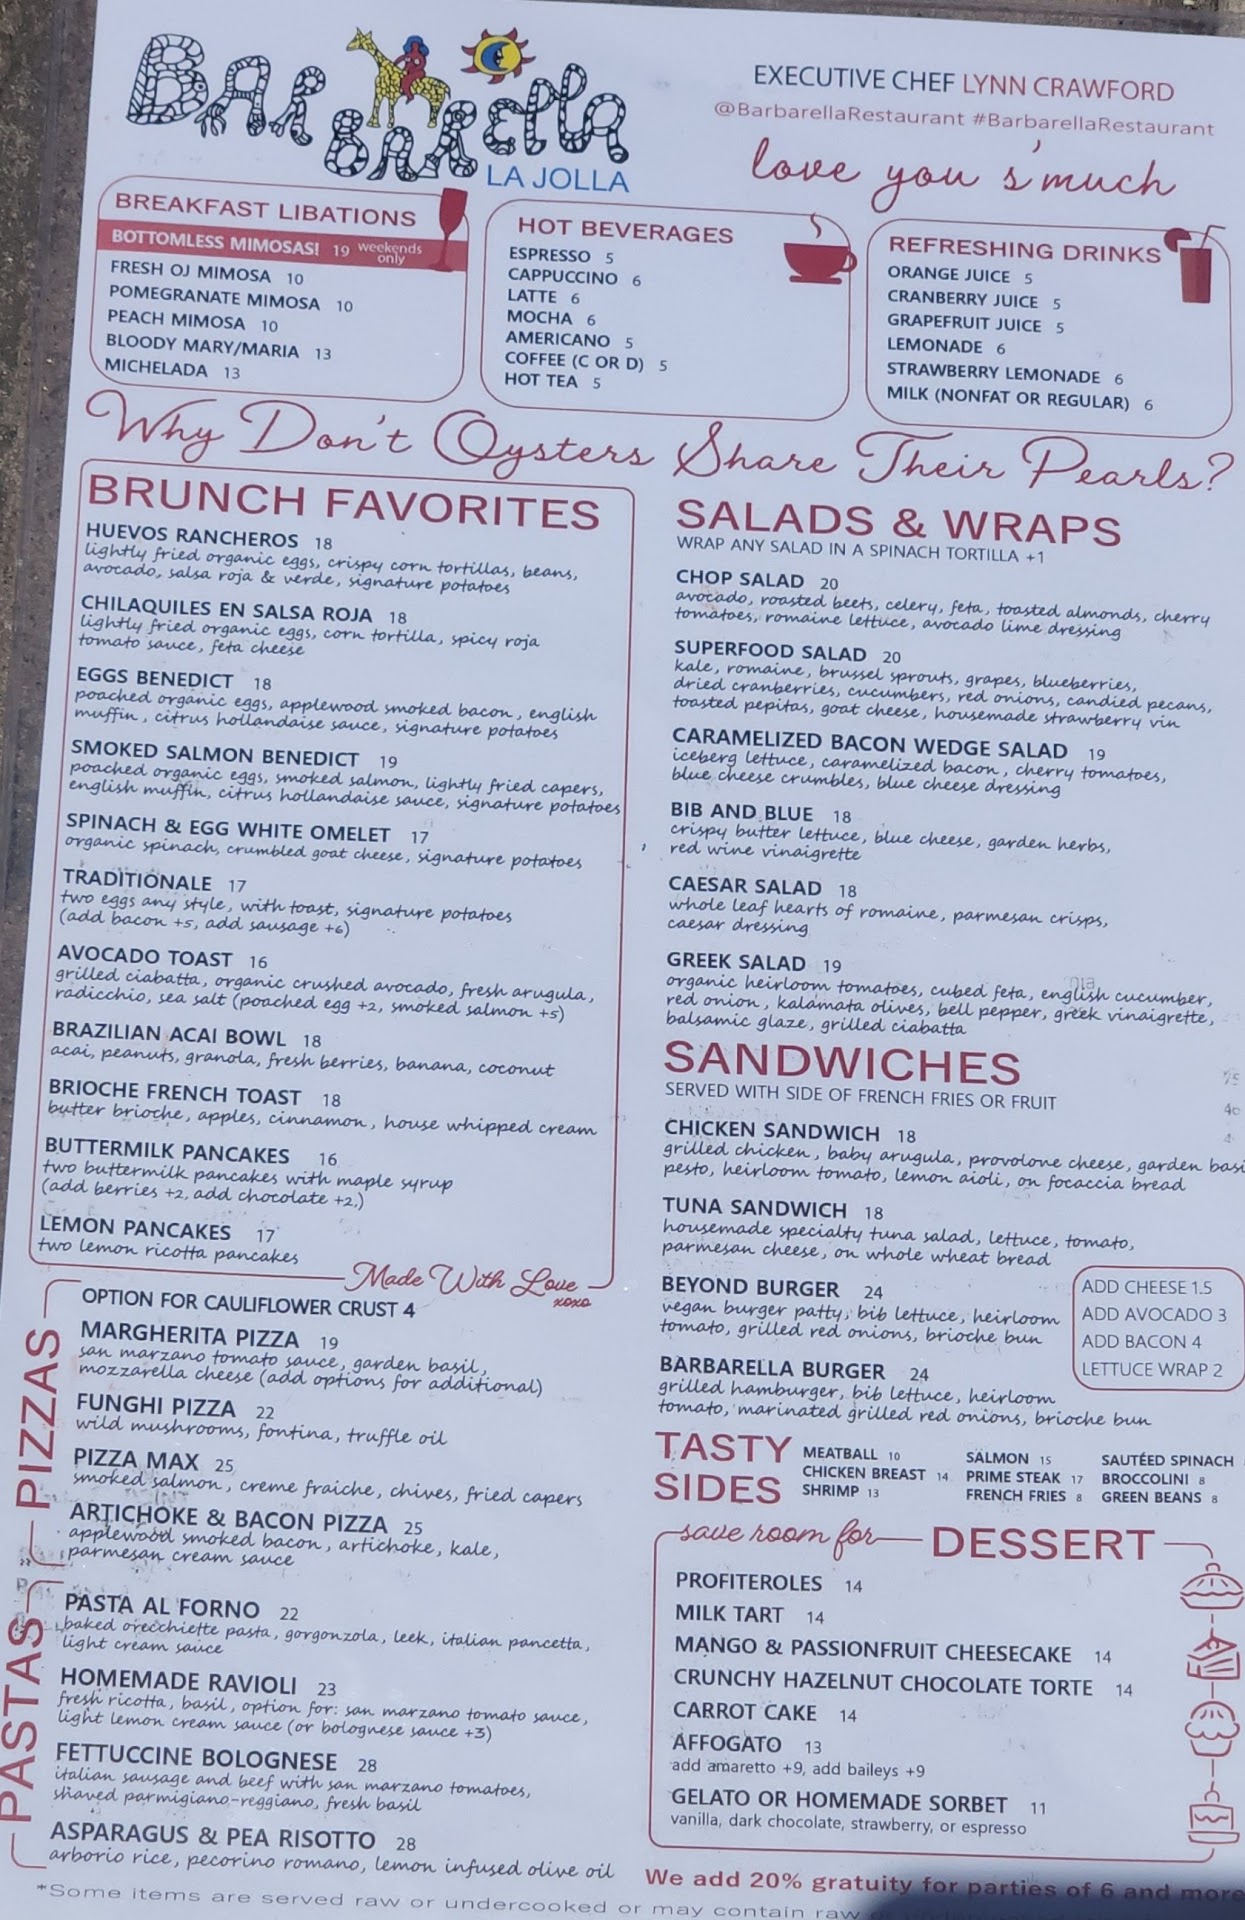 BARBARELLA
LA JOLLA
EXECUTIVE CHEF LYNN CRAWFORD
@BarbarellaRestaurant #BarbarellaRestaurant
love you s'much
BREAKFAST LIBATIONS
BOTTOMLESS MIMOSAS! 19 weekends only
FRESH OJ MIMOSA 10
POMEGRANATE MIMOSA 10
PEACH MIMOSA 10
BLOODY MARY/MARIA 13
MICHELADA 13
HOT BEVERAGES
ESPRESSO 5
CAPPUCCINO 6
LATTE 6
MOCHA 6
AMERICANO 5
COFFEE (C OR D) 5
HOT TEA 5
REFRESHING DRINKS
ORANGE JUICE 5
CRANBERRY JUICE 5
GRAPEFRUIT JUICE 5
LEMONADE 6
STRAWBERRY LEMONADE 6
MILK (NONFAT OR REGULAR) 6
Why Don't Oysters Share Their Pearls?
BRUNCH FAVORITES
HUEVOS RANCHEROS 18
lightly fried organic eggs, crispy corn tortillas, beans,
avocado, salsa roja & verde, signature potatoes
CHILAQUILES EN SALSA ROJA 18
lightly fried organic eggs, corn tortilla, spicy roja
tomato sauce, feta cheese
EGGS BENEDICT 18
poached organic eggs, applewood smoked bacon, english
muffin, citrus hollandaise sauce, signature potatoes
SMOKED SALMON BENEDICT 19
poached organic eggs, smoked salmon, lightly fried capers,
english muffin, citrus hollandaise sauce, signature potatoes
SPINACH & EGG WHITE OMELET 17
organic spinach, crumbled goat cheese, signature potatoes
TRADITIONALE 17
two eggs any style, with toast, signature potatoes
(add bacon +5, add sausage +6)
AVOCADO TOAST 16
grilled ciabatta, organic crushed avocado, fresh arugula,
radicchio, sea salt (poached egg +2, smoked salmon +5)
BRAZILIAN ACAI BOWL 18
acai, peanuts, granola, fresh berries, banana, coconut
BRIOCHE FRENCH TOAST 18
butter brioche, apples, cinnamon, house whipped cream
BUTTERMILK PANCAKES 16
two buttermilk pancakes with maple syrup
(add berries +2, add chocolate +2,)
LEMON PANCAKES 17
two lemon ricotta pancakes
Made With Love
xoxo
PIZZAS
OPTION FOR CAULIFLOWER CRUST 4
MARGHERITA PIZZA 19
san marzano tomato sauce, garden basil,
mozzarella cheese (add options for additional)
FUNGHI PIZZA 22
wild mushrooms, fontina, truffle oil
PIZZA MAX 25
smoked salmon, creme fraiche, chives, fried capers
ARTICHOKE & BACON PIZZA 25
applewood smoked bacon, artichoke, kale,
parmesan cream sauce
PASTAS
PASTA AL FORNO 22
baked orecchiette pasta, gorgonzola, leek, italian pancetta,
light cream sauce
HOMEMADE RAVIOLI 23
fresh ricotta, basil, option for: san marzano tomato sauce,
light lemon cream sauce (or bolognese sauce +3)
FETTUCCINE BOLOGNESE 28
italian sausage and beef with san marzano tomatoes,
shaved parmigiano-reggiano, fresh basil
ASPARAGUS & PEA RISOTTO 28
arborio rice, pecorino romano, lemon infused olive oil
SALADS & WRAPS
WRAP ANY SALAD IN A SPINACH TORTILLA +1
CHOP SALAD 20
avocado, roasted beets, celery, feta, toasted almonds, cherry
tomatoes, romaine lettuce, avocado lime dressing
SUPERFOOD SALAD 20
kale, romaine, brussel sprouts, grapes, blueberries,
dried cranberries, cucumbers, red onions, candied pecans,
toasted pepitas, goat cheese, housemade strawberry vin
CARAMELIZED BACON WEDGE SALAD 19
iceberg lettuce, caramelized bacon, cherry tomatoes,
blue cheese crumbles, blue cheese dressing
BIB AND BLUE 18
crispy butter lettuce, blue cheese, garden herbs,
red wine vinaigrette
CAESAR SALAD 18
whole leaf hearts of romaine, parmesan crisps,
caesar dressing
GREEK SALAD 19
organic heirloom tomatoes, cubed feta, english cucumber,
red onion, kalamata olives, bell pepper, greek vinaigrette,
balsamic glaze, grilled ciabatta
SANDWICHES
SERVED WITH SIDE OF FRENCH FRIES OR FRUIT
CHICKEN SANDWICH 18
grilled chicken, baby arugula, provolone cheese, garden basi
pesto, heirloom tomato, lemon aioli, on focaccia bread
TUNA SANDWICH 18
housemade specialty tuna salad, lettuce, tomato,
parmesan cheese, on whole wheat bread
BEYOND BURGER 24
vegan burger patty, bib lettuce, heirloom
tomato, grilled red onions, brioche bun
BARBARELLA BURGER 24
grilled hamburger, bib lettuce, heirloom
tomato, marinated grilled red onions, brioche bun
ADD CHEESE 1.5
ADD AVOCADO 3
ADD BACON 4
LETTUCE WRAP 2
TASTY
SIDES
MEATBALL 10
CHICKEN BREAST 14
SHRIMP 13
SALMON 15
PRIME STEAK 17
FRENCH FRIES 8
SAUTÉED SPINACH
BROCCOLINI 8
GREEN BEANS 8
save room for DESSERT
PROFITEROLES 14
MILK TART 14
MANGO & PASSIONFRUIT CHEESECAKE 14
CRUNCHY HAZELNUT CHOCOLATE TORTE 14
CARROT CAKE 14
AFFOGATO 13
add amaretto +9, add baileys +9
GELATO OR HOMEMADE SORBET 11
vanilla, dark chocolate, strawberry, or espresso
We add 20% gratuity for parties of 6 and more
*Some items are served raw or undercooked or may contain raw